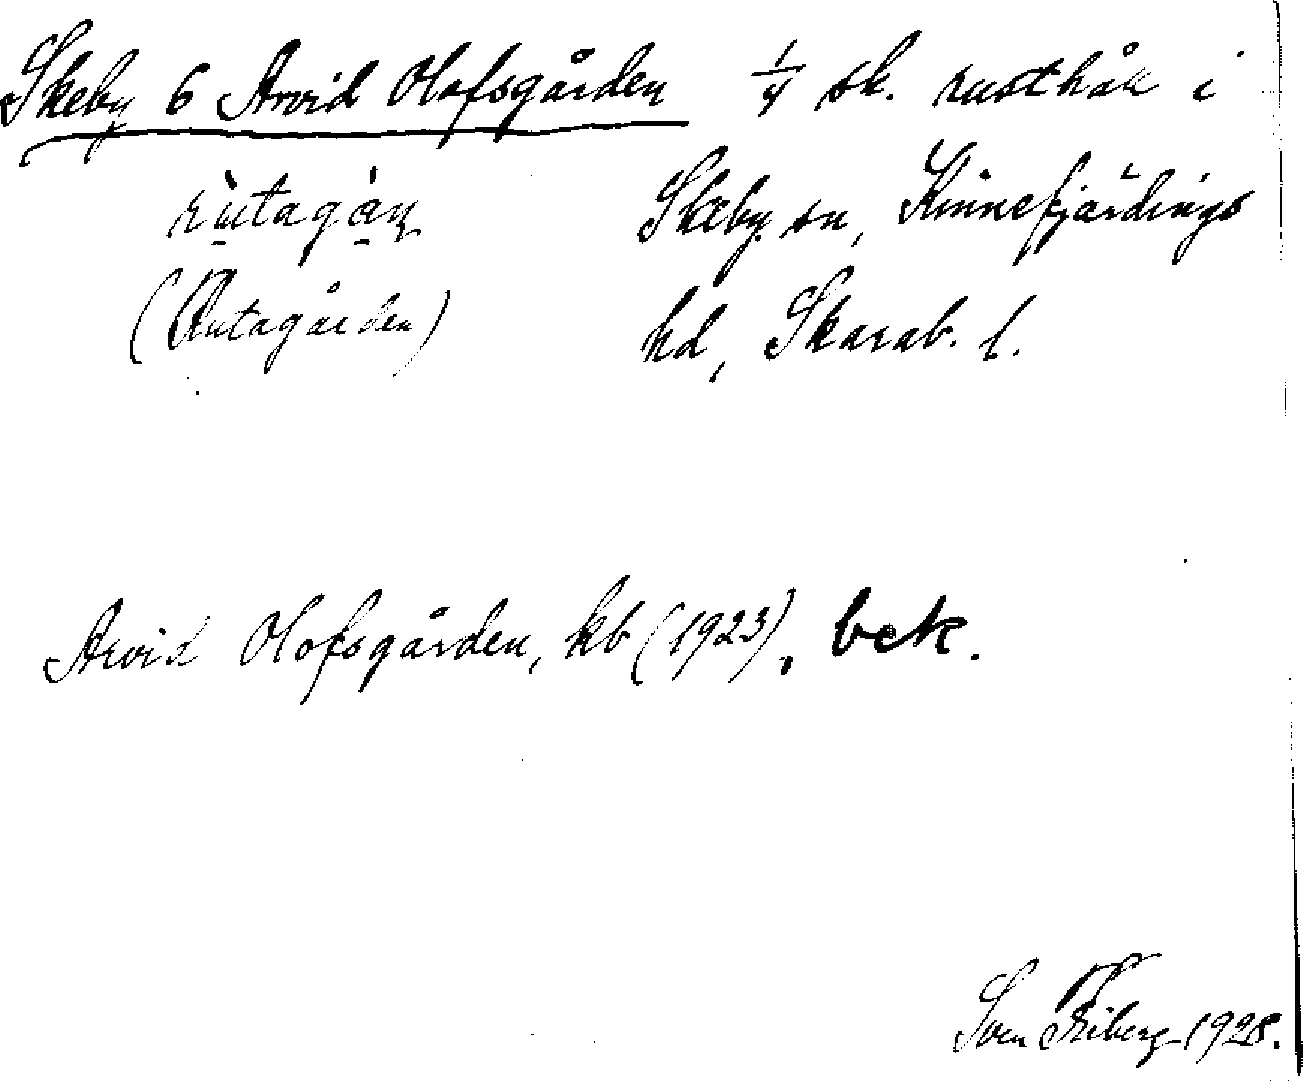 Skeby 6 Arvid Olofsgården 1/4 sk. rusthåll i
rùtagán Skeby sn, Kinnefjärdings
(Rutagården) hd, Skarab. l.
Arvid Olofsgården, kb (1923), bek.
Sven Friberg 1928.